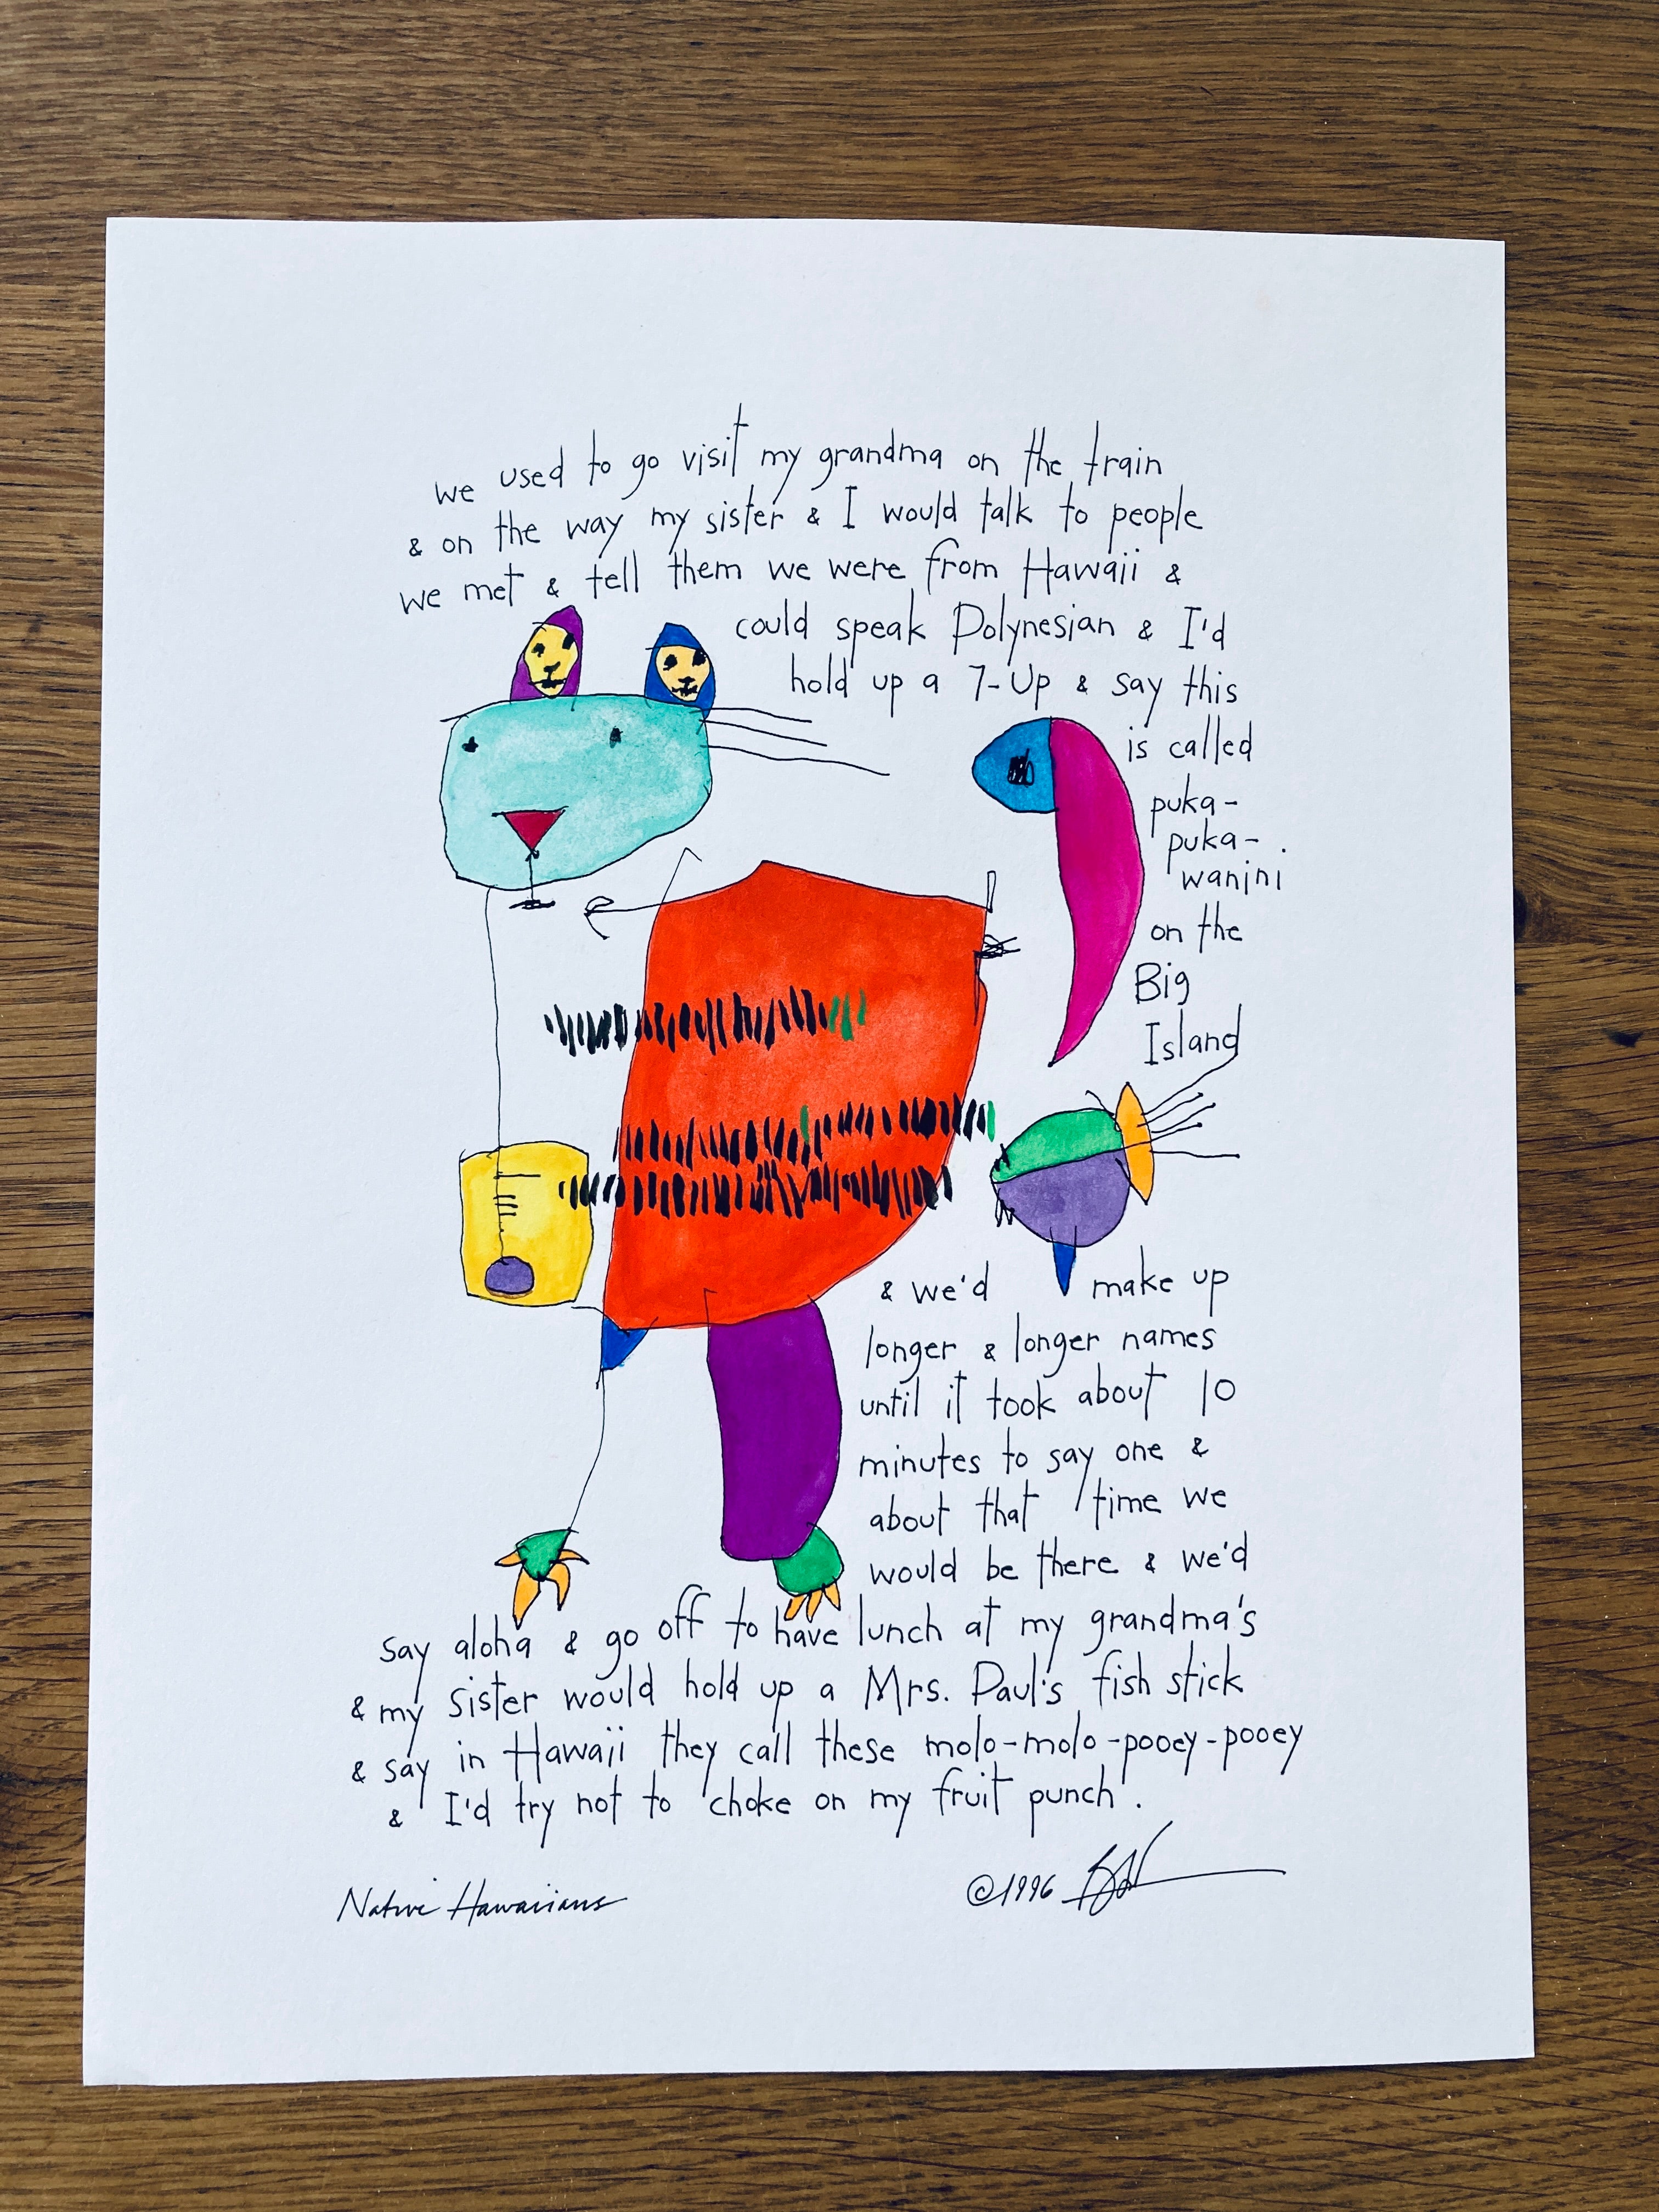 we used to go visit my grandma on the train
& on the way my sister & I would talk to people
we met & tell them we were from Hawaii &
could speak Polynesian & I'd
hold up a 7-Up & say this
is called
puka-
puka-
wanini
on the
Big
Island
& we'd make up
longer & longer names
until it took about 10
minutes to say one &
about that time we
would be there & we'd
say aloha & go off to have lunch at my grandma's
& my sister would hold up a Mrs. Paul's fish stick
& say in Hawaii they call these molo-molo-pooey-pooey
& I'd try not to choke on my fruit punch.
Native Hawaiians
©1996